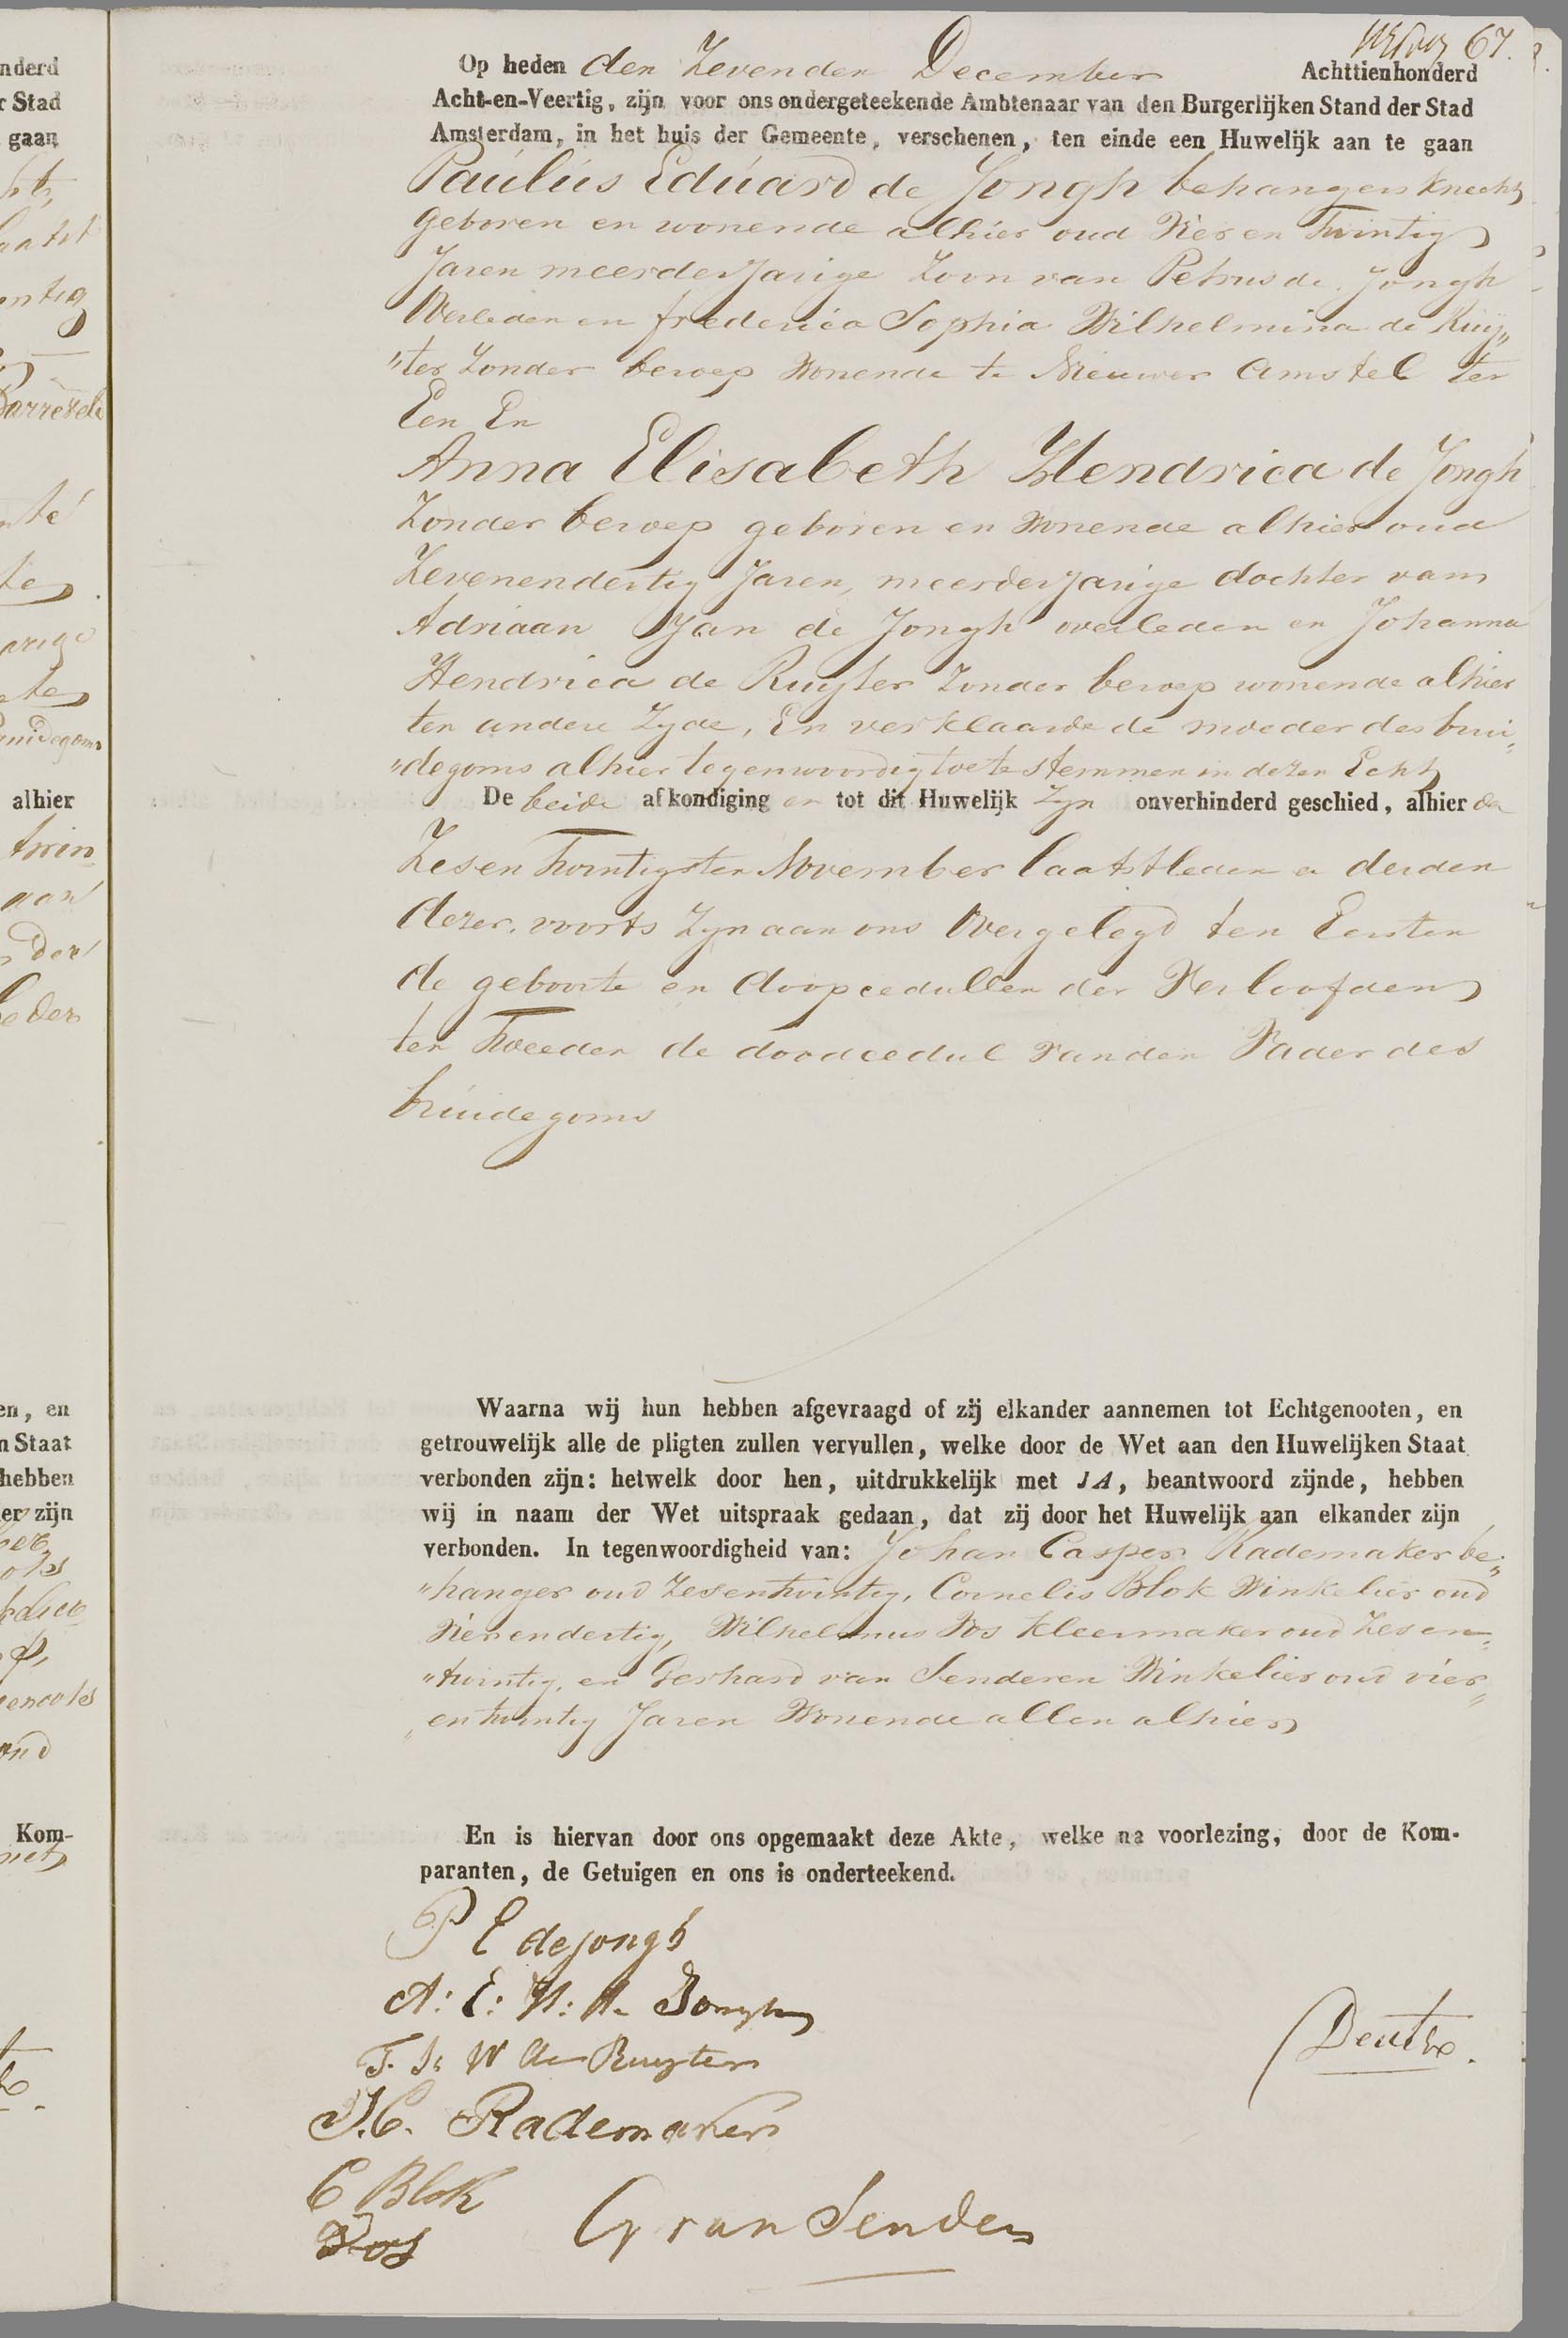 67.
Op heden den Zevenden December Achttienhonderd
Acht-en-Veertig, zijn voor ons ondergeteekende Ambtenaar van den Burgerlijken Stand der Stad
Amsterdam, in het huis der Gemeente, verschenen, ten einde een Huwelijk aan te gaan
Paulus Eduard de Jongh behangersknecht
geboren en wonende alhier oud Vier en Twintig
Jaren meerderjarige Zoon van Petrus de Jongh
Overleden en frederica Sophia Wilhelmina de Ruij„
„ter Zonder beroep Wonende te Nieuwer Amstel ter
Een En
Anna Elisabeth Hendrica de Jongh
Zonder beroep geboren en Wonende alhier oud
Zevenendertig Jaren, meerderjarige dochter van
Adriaan Jan de Jongh overleden en Johanna
Hendrica de Ruyter Zonder beroep wonende alhier
ten andere Zyde, En verklaarde de moeder des brui„
„degoms alhier tegenwoordig toe te stemmen in dezen Echt
De beide afkondiging en tot dit Huwelijk Zyn onverhinderd geschied, alhier den
Zesen Twintigsten November laatstleden en derden
dezer, voorts Zyn aan ons Overgelegd ten Eersten
de geboorte en doopcedullen der Verloofden
ten Tweeden de doodcedul van den Vader des
bruidegoms
Waarna wij hun hebben afgevraagd of zij elkander aannemen tot Echtgenooten, en
getrouwelijk alle de pligten zullen vervullen, welke door de Wet aan den Huwelijken Staat
verbonden zijn: hetwelk door hen, uitdrukkelijk met JA, beantwoord zijnde, hebben
wij in naam der Wet uitspraak gedaan, dat zij door het Huwelijk aan elkander zijn
verbonden. In tegenwoordigheid van: Johan Casper Rademaker be„
„hanger oud Zesentwintig, Cornelis Blok Winkelier oud
Vierendertig, Wilhelmus Vos Kleermaker oud Zesen„
„twintig, en Gerhard van Senderen Winkelier oud vier„
„entwintig Jaren Wonende allen alhier
En is hiervan door ons opgemaakt deze Akte, welke na voorlezing, door de Kom-
paranten, de Getuigen en ons is onderteekend.
P E de jongh
A: E: H: de Jongh
F. S. W de Ruyter
J.C. Rademaker
C Blok
Vos
G van Senden